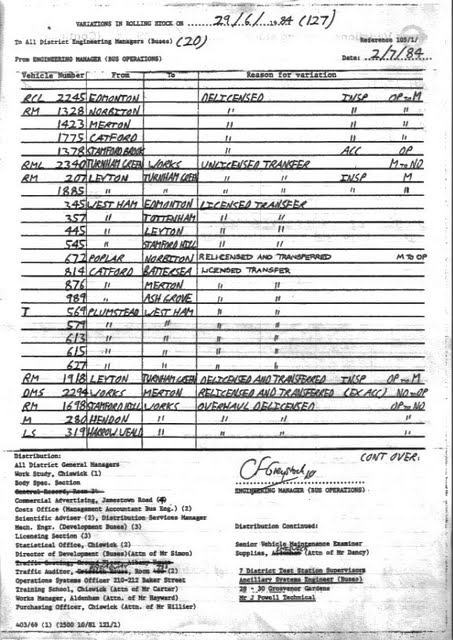 VARIATIONS IN ROLLING STOCK ON 29/6/ 1984 (127)
To All District Engineering Managers (Buses) (20)
Reference 105/1/
From ENGINEERING MANAGER (BUS OPERATIONS)
Date: 2/7/84
Vehicle Number From To Reason for variation
RCL 2245 EDMONTON DELICENSED INSP OP to M
RM 1328 NORBITON " " "
1423 MERTON " " "
1775 CATFORD " " "
1378 STAMFORD BROOK " ACC OP
RML 2340 TURNHAM GREEN WORKS UNLICENSED TRANSFER M to NO
RM 207 LEYTON TURNHAM GREEN " " INSP M
1885 " " " " " "
345 WEST HAM EDMONTON LICENSED TRANSFER
357 " TOTTENHAM " "
445 " LEYTON " "
545 " STAMFORD HILL " "
672 POPLAR NORBITON RELICENSED AND TRANSFERRED M to OP
814 CATFORD BATTERSEA LICENSED TRANSFER
876 " MERTON " "
989 " ASH GROVE " "
T 569 PLUMSTEAD WEST HAM " "
579 " " " "
613 " " " "
615 " " " "
627 " " " "
RM 1918 LEYTON TURNHAM GREEN DELICENSED AND TRANSFERRED INSP OP to M
DMS 2294 WORKS MERTON RELICENSED AND TRANSFERRED (EX ACC) NO to OP
RM 1698 STAMFORD HILL WORKS OVERHAUL DELICENSED OP to NO
M 280 HENDON " " " "
LS 319 HARROW WEALD " " " "
CONT OVER.
Distribution:
All District General Managers
Work Study, Chiswick (1)
Body Spec. Section
Central Record, Room
Commercial Advertising, Jamestown Road
Costs Office (Management Accountant Bus Eng.) (2)
Scientific Adviser (2), Distribution Services Manager
Mech. Engr. (Development Buses) (3)
Licensing Section (3)
Statistical Office, Chiswick (2)
Director of Development (Buses)(Attn of Mr Simon)
Traffic
Traffic Auditor, Room (2)
Operations Systems Officer 210-212 Baker Street
Training School, Chiswick (Attn of Mr Carter)
Works Manager, Aldenham (Attn of Mr Hayward)
Purchasing Officer, Chiswick (Attn of Mr Hillier)
ENGINEERING MANAGER (BUS OPERATIONS)
Distribution Continued:
Senior Vehicle Maintenance Examiner
Supplies, (Attn of Mr Dancy)
7 District Test Station Supervisors
Ancillary Systems Engineer (Buses)
28 - 30 Grosvenor Gardens
Mr J Powell Technical
403/69 (1) (2500 10/81 121/1)